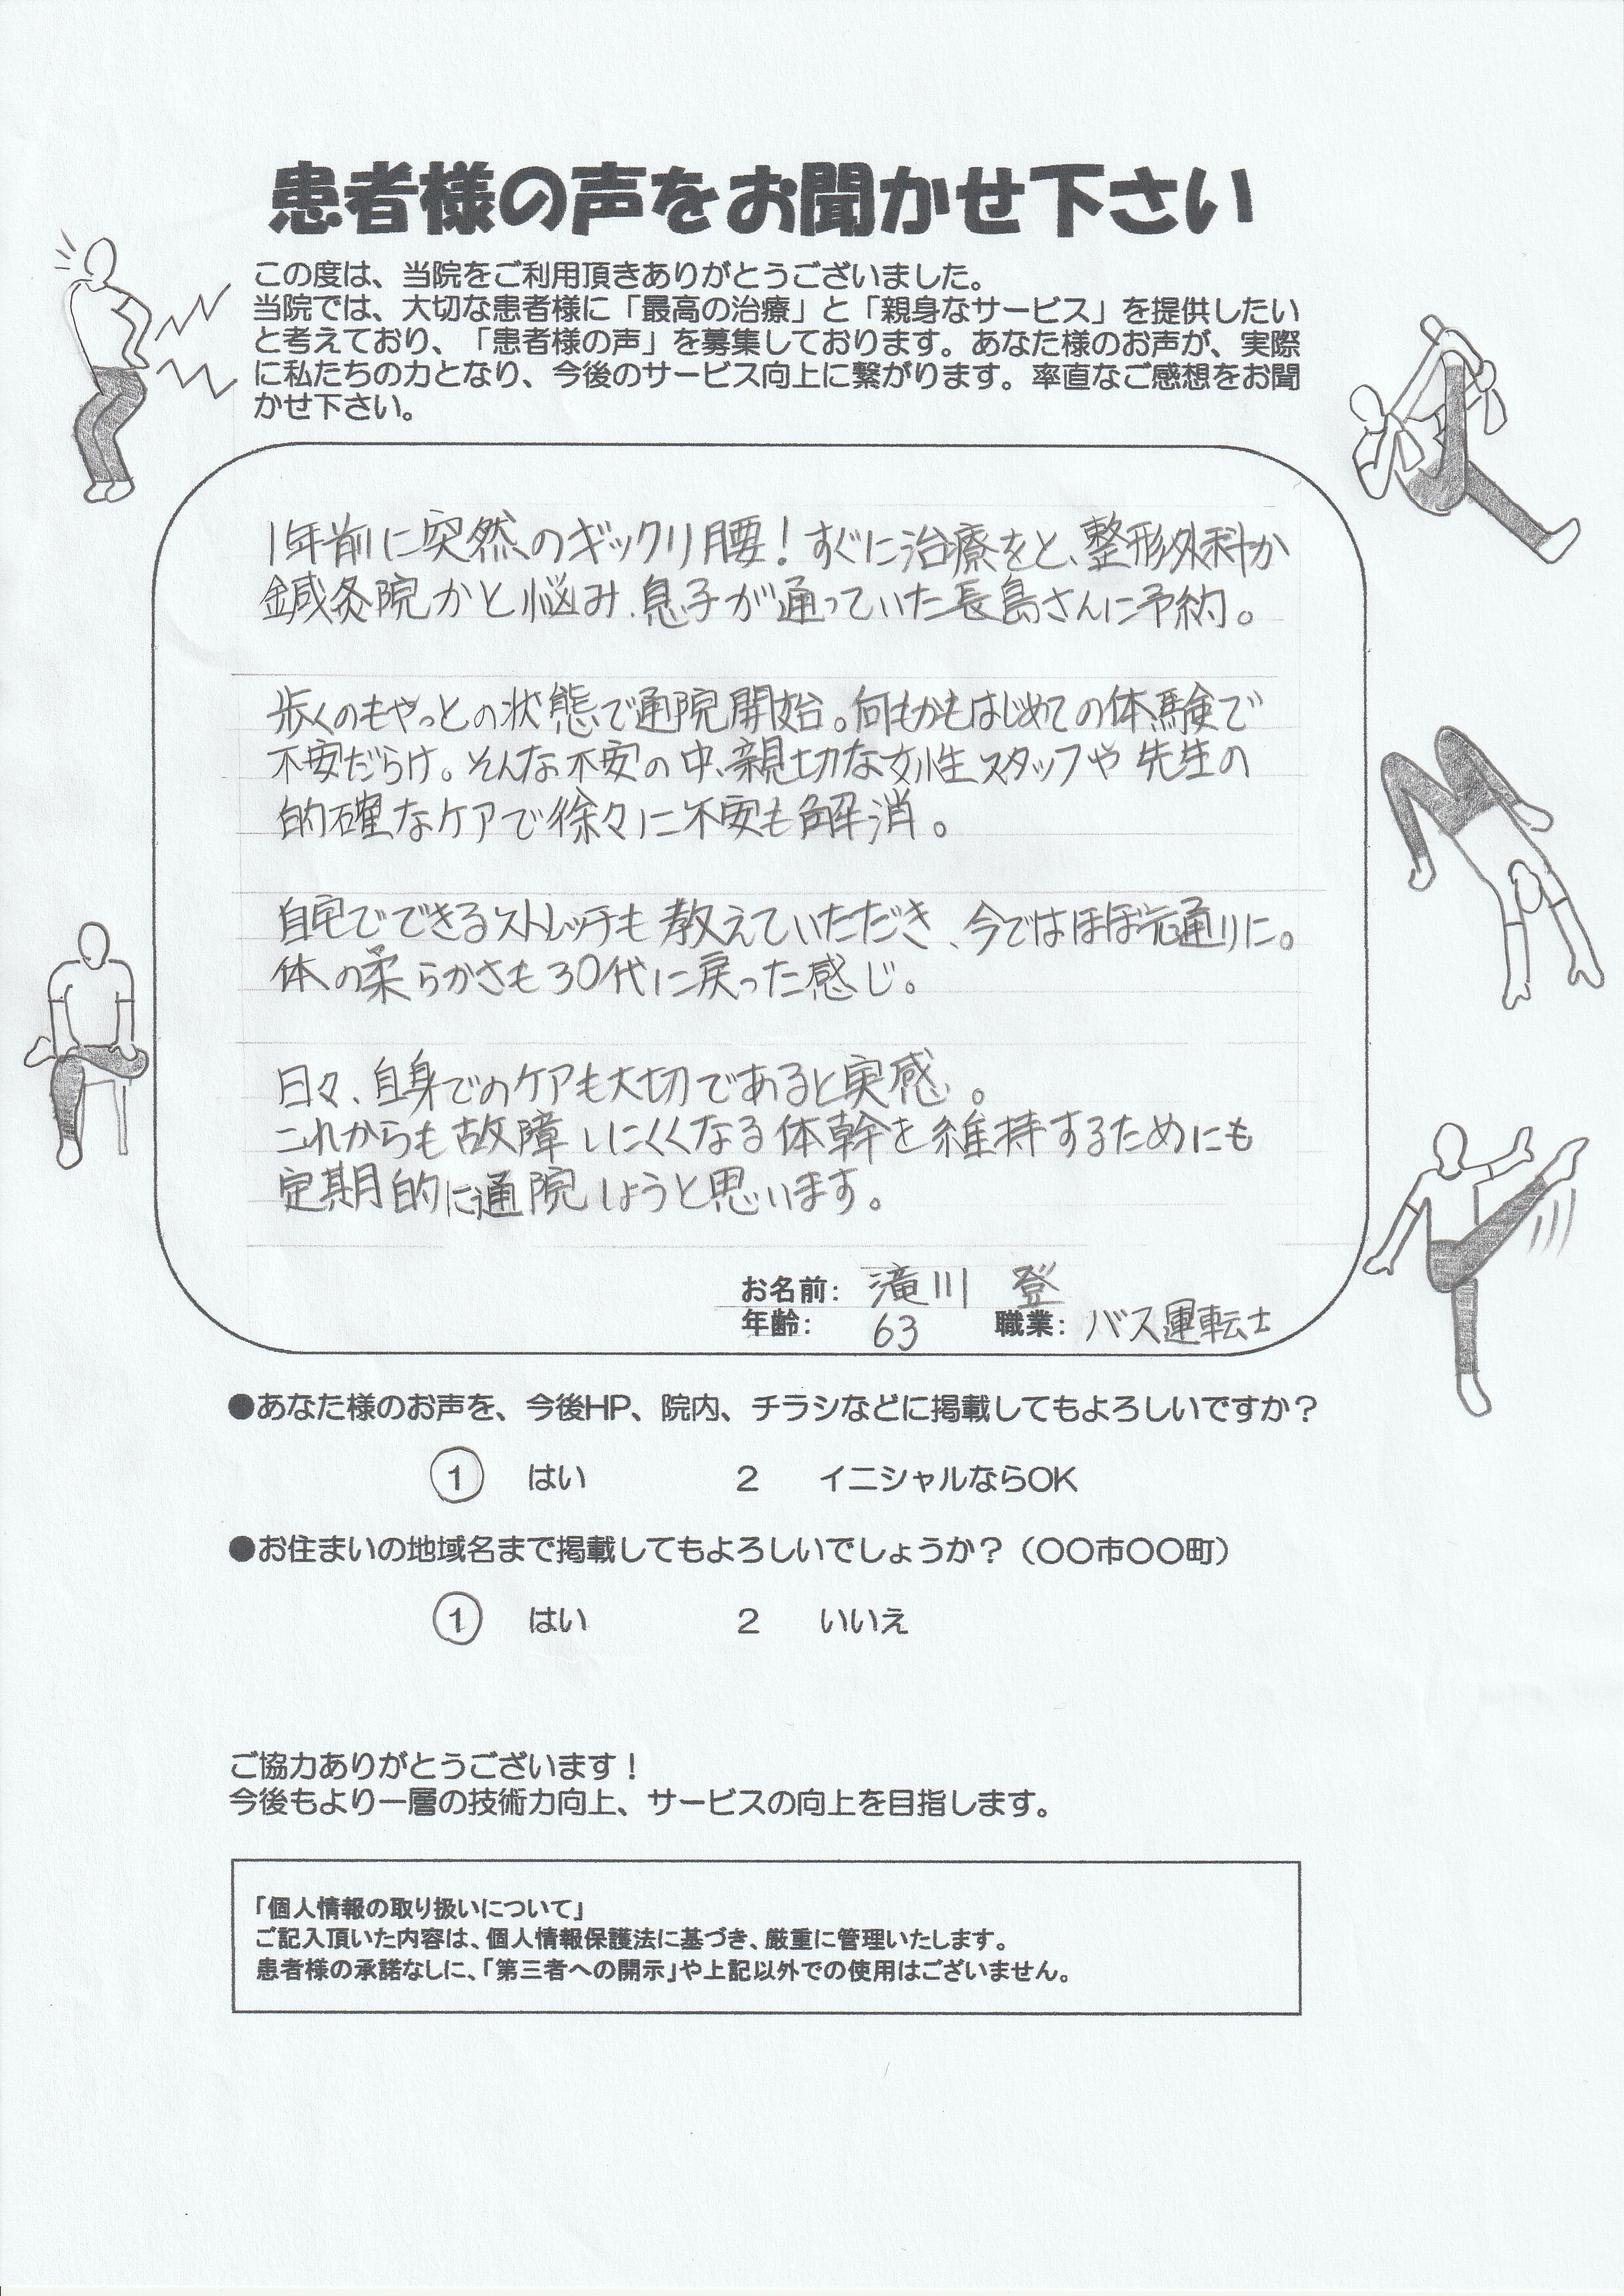 患者様の声をお聞かせ下さい
この度は、当院をご利用頂きありがとうございました。
当院では、大切な患者様に「最高の治療」と「親身なサービス」を提供したい
と考えており、「患者様の声」を募集しております。あなた様のお声が、実際
に私たちの力となり、今後のサービス向上に繋がります。率直なご感想をお聞
かせ下さい。
1年前に突然のギックリ腰！すぐに治療をと、整形外科か
鍼灸院かと悩み、息子が通っていた長島さんに予約。
歩くのもやっとの状態で通院開始。何もかもはじめての体験で
不安だらけ。そんな不安の中、親切な女性スタッフや先生の
的確なケアで徐々に不安も解消。
自宅でできるストレッチも教えていただき、今ではほぼ元通りに。
体の柔らかさも30代に戻った感じ。
日々、自身でのケアも大切であると実感。
これからも故障しにくくなる体幹を維持するためにも
定期的に通院しようと思います。
お名前： 滝川 登
年齢： 63 職業： バス運転士
●あなた様のお声を、今後HP、院内、チラシなどに掲載してもよろしいですか？
1 はい 2 イニシャルならOK
●お住まいの地域名まで掲載してもよろしいでしょうか？（〇〇市〇〇町）
1 はい 2 いいえ
ご協力ありがとうございます！
今後もより一層の技術力向上、サービスの向上を目指します。
「個人情報の取り扱いについて」
ご記入頂いた内容は、個人情報保護法に基づき、厳重に管理いたします。
患者様の承諾なしに、「第三者への開示」や上記以外での使用はございません。